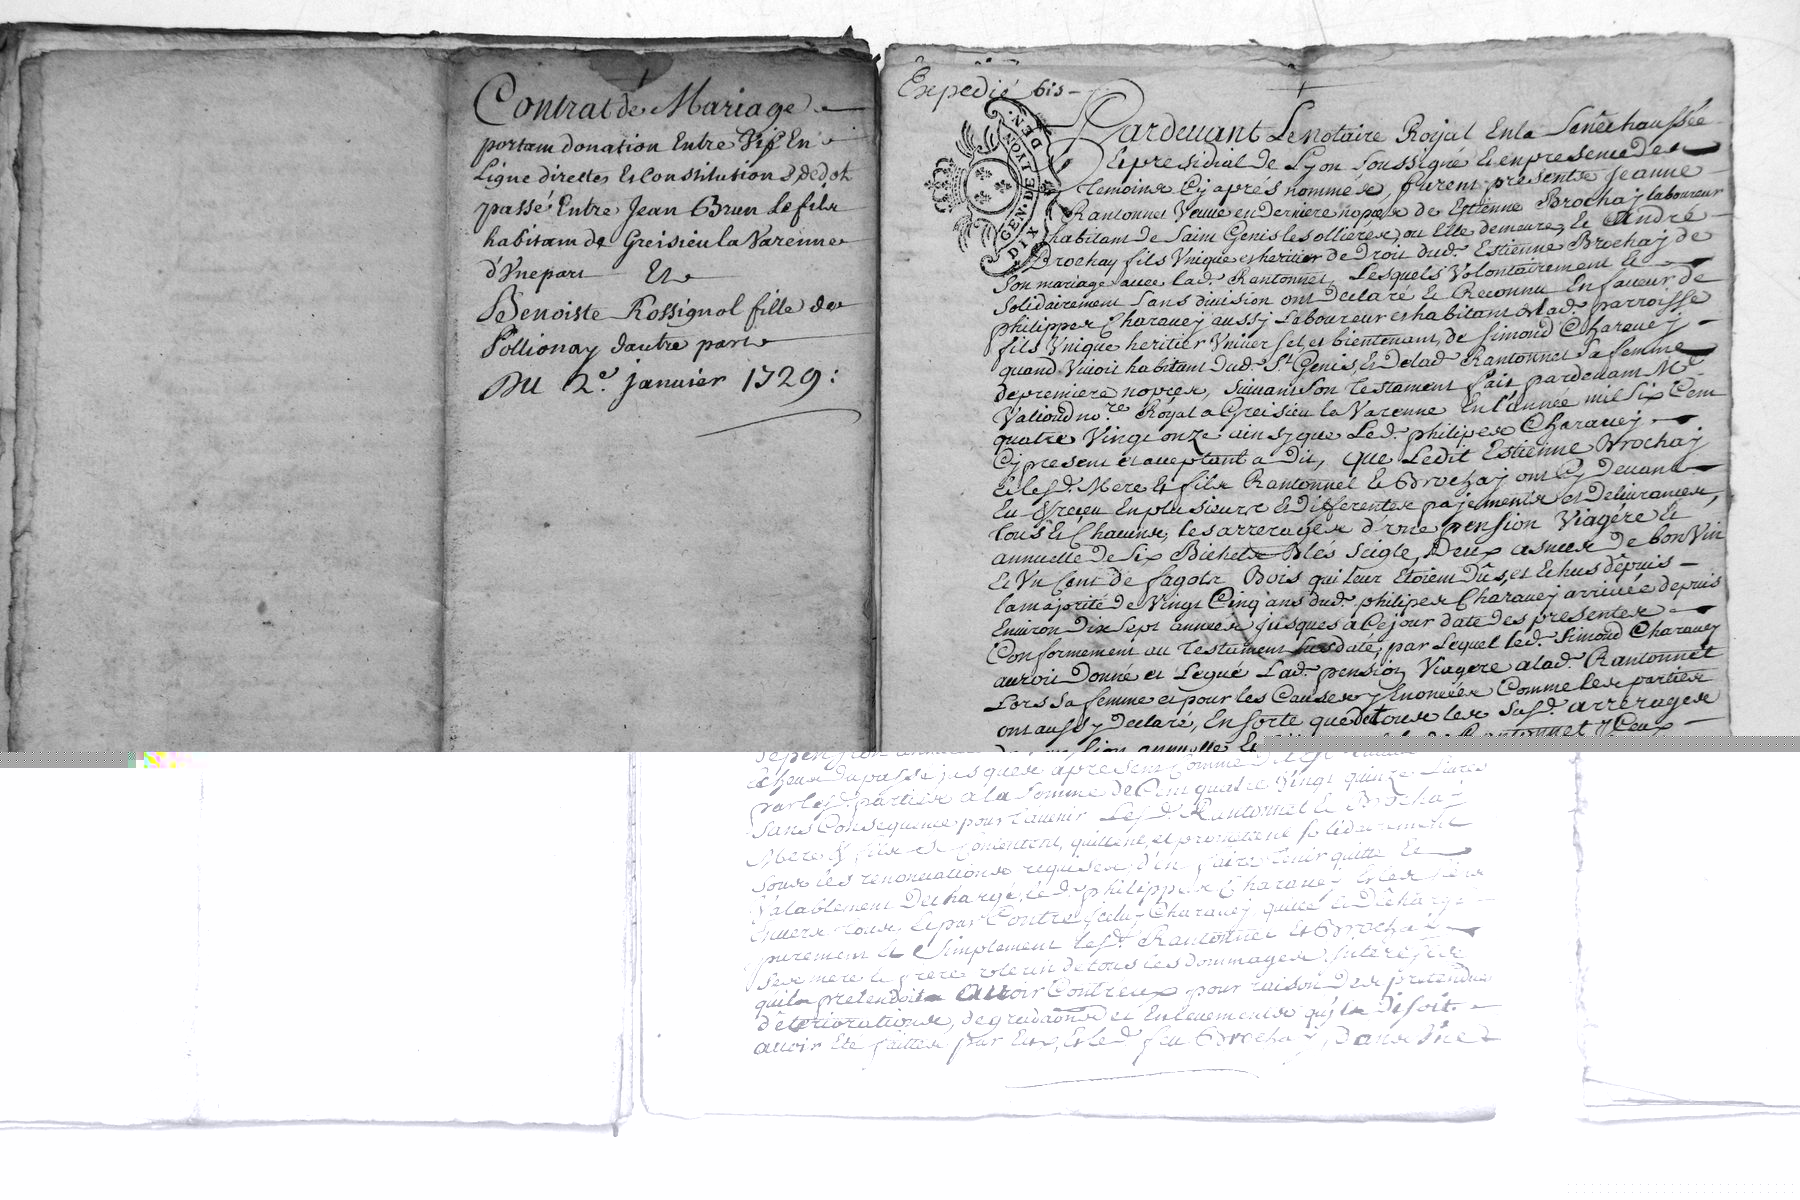 Contrat de Mariage
portam donation Entre Vif En
Ligne directe et Constitution de dot
passé Entre Jean Brun Le fils
habitam de Greisieu la Varenne
d'Vne part Et
Benoiste Rossignol fille de
Pollionay dautre part
Du 2e. janvier 1729 :
Expedié bis
GEN. DE LYON.
DIX DEN.
Pardevant Le notaire Royal En la Senechaussée
et presidial de Lyon Soussigné et en presence des
temoins Cy aprés nommes, furent presents Jeanne
Rantonnet Veuve en derniere nopces de Estienne Brochay laboureur
habitant de Saint Genis les ollieres, ou Elle demeure, et André
Brochay fils Vnique et heritier de Droit dud. Estienne Brochay de
Son mariage avec lad. Rantonnet, Lesquels Volontairement et
Solidairement Sans division ont declaré et Reconnu En faveur de
philippes Charavey aussy Laboureur et habitant de lad. parroisse
fils Vnique heritier Vniversel, et bientenant, de Simond Charavey
quand Vivoit habitant dud. St. Genis, et de lad. Rantonnet Sa femme
de premiere nopces, Suivant Son testament fait pardevant Me
Valioud no.re Royal a Greisieu la Varenne En l'année mil Six Cent
quatre Vingt onze ainsy que Led. philipes Charavey
Cy present et acceptant a Dit, que Ledit Estienne Brochay
Et lesd. Mere et fils Rantonnet et Brochay ont Cy Devant
Eu et reçeu En plusieurs et Differentes payements et Delivrances,
tous et Chacuns, les arrerages d'une pension Viagére et
annuelle de Six Bichets Blés Seigle, Deux asnées de bon Vin
et Vn Cent de fagots Bois qui leur étoient Dûs, et échus depuis
la majorité de Vingt Cinq ans dud. philipes Charavey arrivée depuis
Environ Dix Sept années jusques a Ce jour date des presentes
Conformement au testament Susdaté, par Lequel led. Simond Charavey
auroit Donné et Legué Lad. pension Viagere a lad. Rantonnet
Lors Sa femme et pour les Causes y Enoncées Comme les parties
ont aussy Declaré, En Sorte que de tous les Susd. arrerages
de pension annuelle
échus du passé jusques apresent Comme
par lesd. parties a la Somme de Cent quatre Vingt quinze Livres
Sans Consequence pour l'avenir Lesd. Rantonnet et Brochay
Mere et fils Se Contentent, quittent, et promettent Solidairement
Sous les renonciations requises, d'en faire tenir quitte et
Valablement Dechargé, led. philippes Charavey et les Siens
Envers tous, et par Contre, Icelui Charavey, quitte et Décharge
purement et Simplement lesd. Rantonnet et Brochay
Ses mere et frere uterin de tous les dommages Interests
quil pretendoit avoir Contreux pour raison Des pretendues
déteriorations, degradaõns et Enlevements qu'il Disoit
avoir Eté faittes par Eux, et led. feu Brochay, Dans Vne